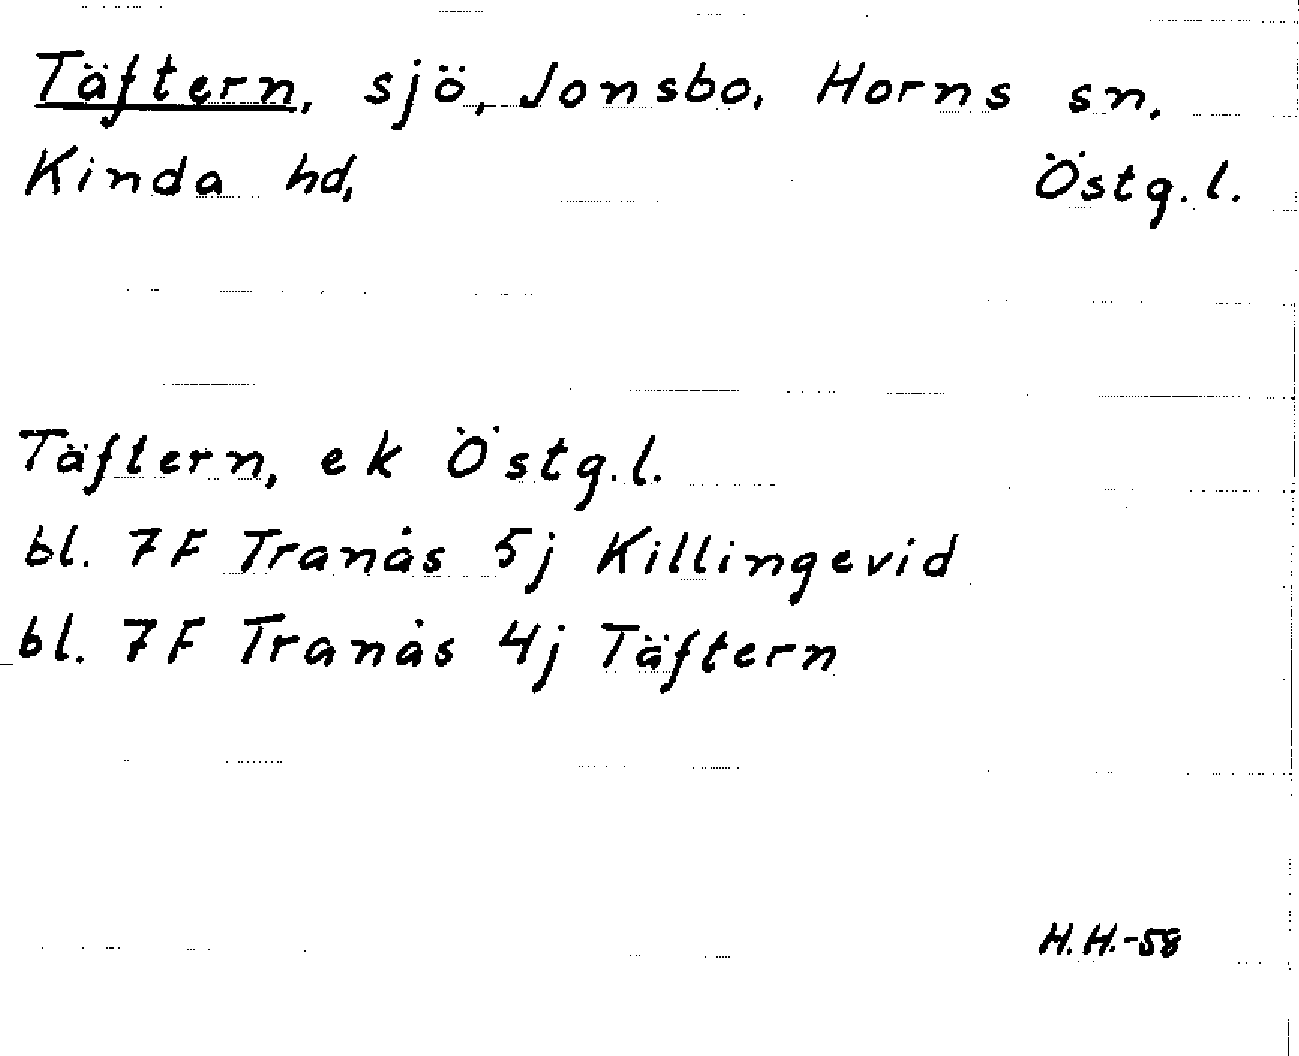 Täftern, sjö, Jonsbo, Horns sn.
Kinda hd, Östg. l.
Täftern, ek Östg. l.
bl. 7F Tranås 5j Killingevid
bl. 7F Tranås 4j Täftern
H.H.-58